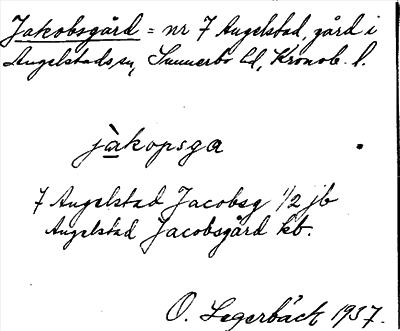 Jakobsgård = nr 7 Angelstad, gård i
Angelstads sn, Sunnerbo hd, Kronob. l.
jàkopsga
7 Angelstad Jacobsg 1/2 jb
Angelstad Jacobsgård kb.
O. Segerbäck 1937.